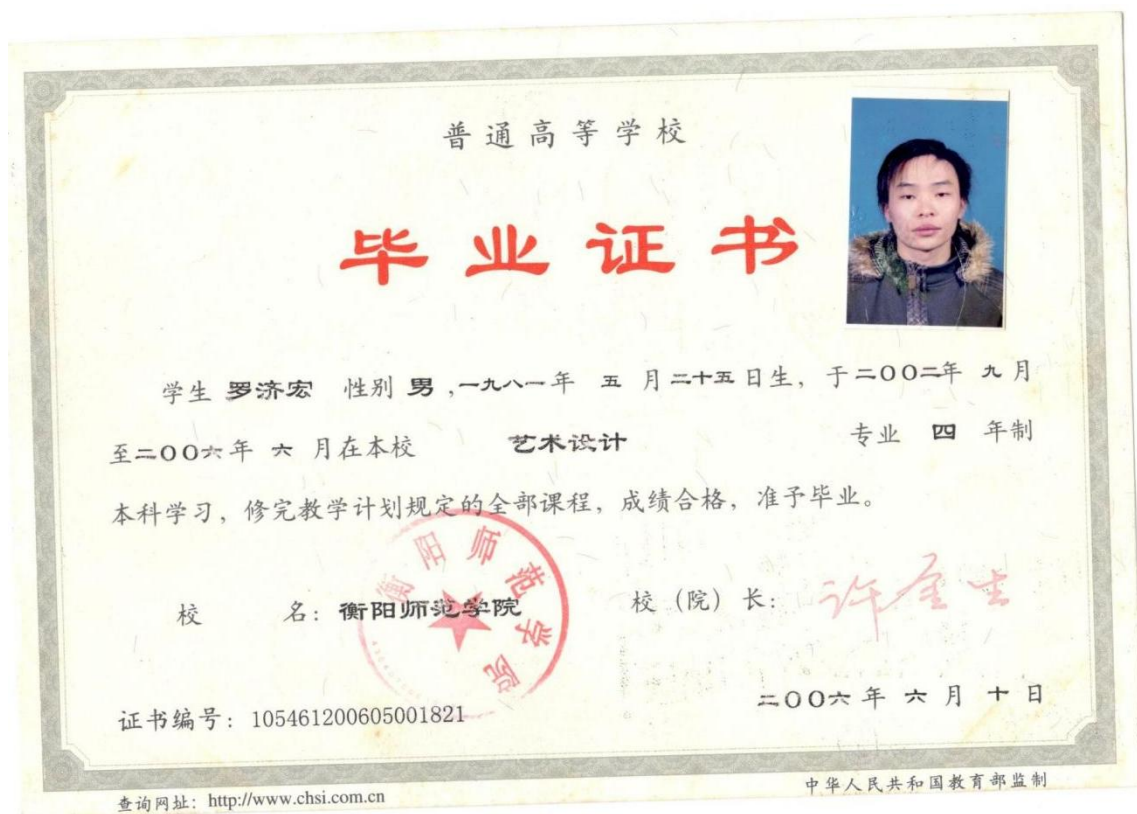 普通高等学校
毕业证书
学生 罗济宏 性别 男，一九八一年 五 月二十五日生，于二〇〇二年 九月
至二〇〇六年 六 月在本校 艺术设计 专业 四 年制
本科学习，修完教学计划规定的全部课程，成绩合格，准予毕业。
衡阳师范学院
校 名：衡阳师范学院 校（院）长：
二〇〇六年 六 月 十 日
证书编号：105461200605001821
查询网址：http://www.chsi.com.cn 中华人民共和国教育部监制